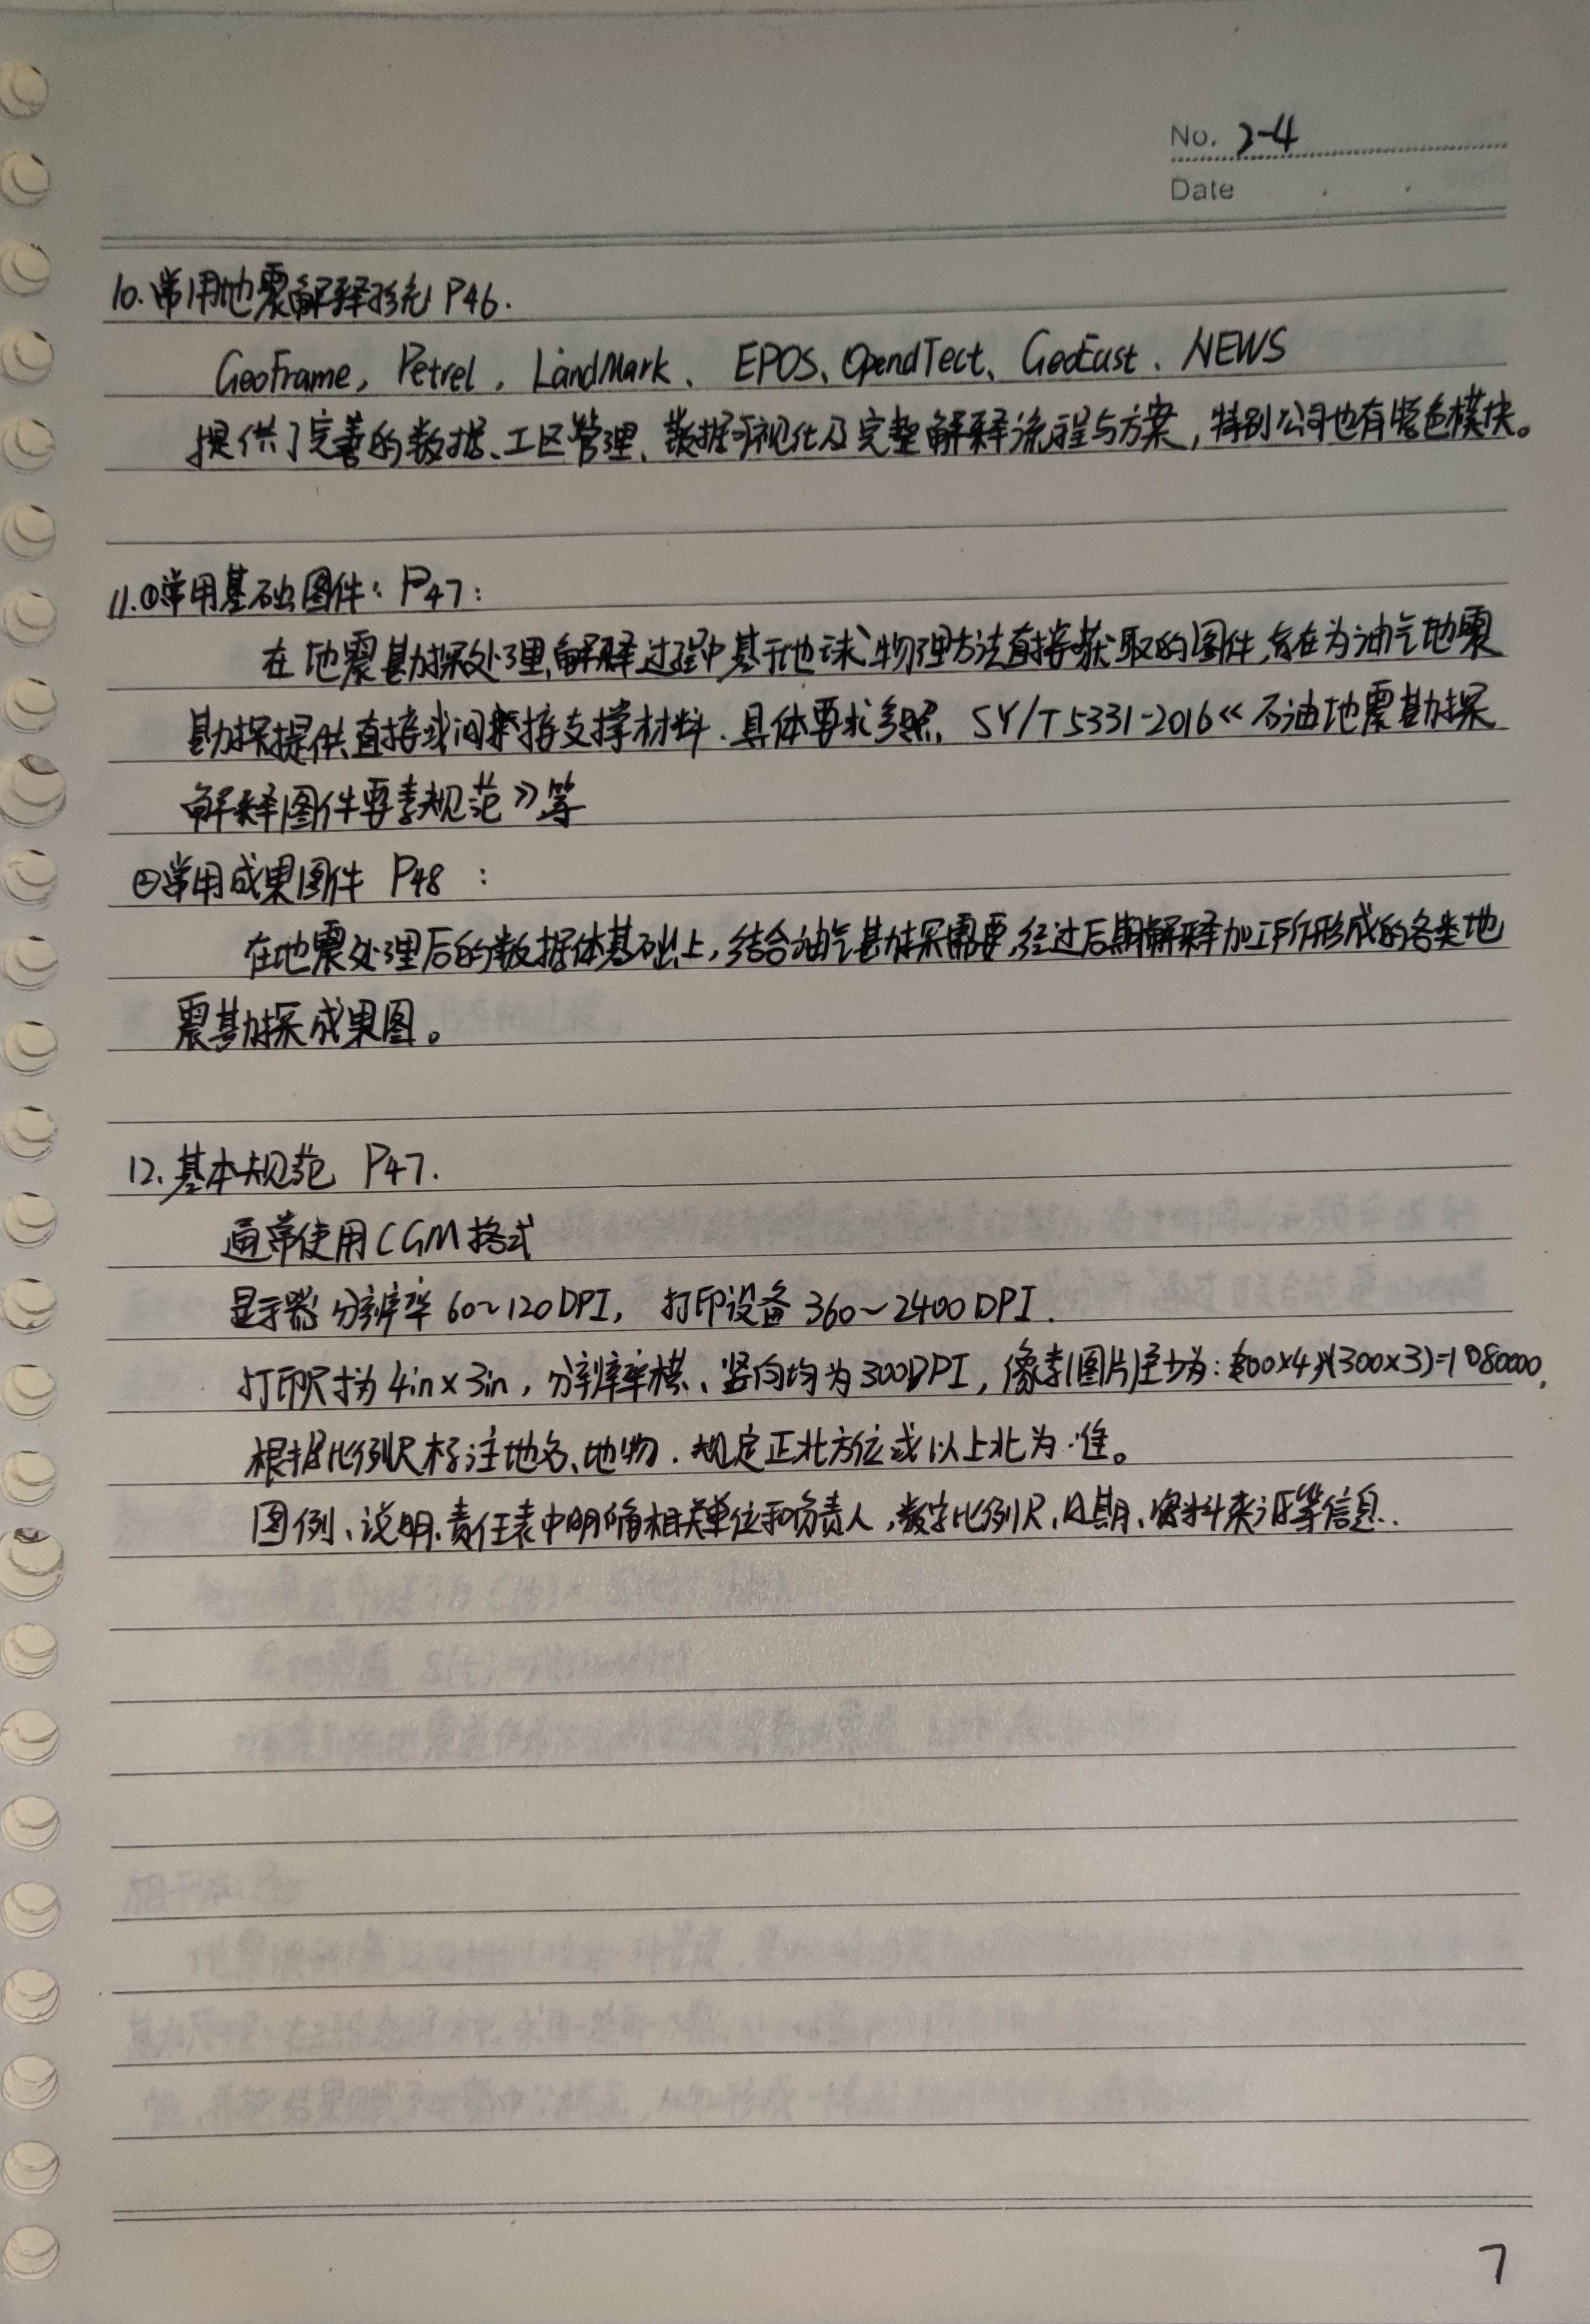 No. 2-4
Date
10.常用地震解释系统 P46.
GeoFrame, Petrel, LandMark、EPOS、OpendTect、GeoEast、NEWS
提供了完善的数据、工区管理、数据可视化及完整解释流程与方案，特别公司也有特色模块。
11.①常用基础图件: P47:
在地震勘探处理、解释过程中基于地球物理方法直接获取的图件,旨在为油气地震
勘探提供直接或间接支撑材料.具体要求参照、SY/T 5331-2016《石油地震勘探
解释图件要素规范》等
②常用成果图件 P48 :
在地震处理后的数据体基础上,结合油气勘探需要,经过后期解释加工所形成的各类地
震勘探成果图。
12.基本规范 P47.
通常使用CGM格式
显示器分辨率60~120DPI, 打印设备360~2400DPI.
打印尺寸为4in×3in, 分辨率横、竖向均为300DPI, 像素(图片)至少为:(300×4)×(300×3)=1080000,
根据比例尺标注地名、地物.规定正北方位或以上北为准。
图例、说明.责任表中明确相关单位和负责人,数字比例尺、日期、资料来源等信息.
7